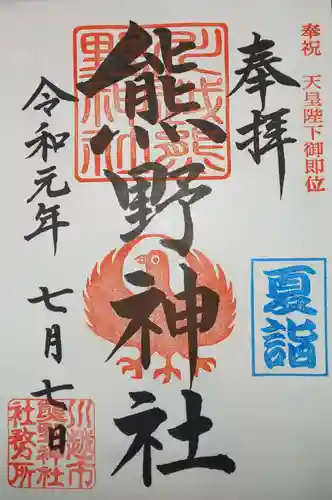 奉祝 天皇陛下御即位
奉拝
夏詣
熊野神社
川越熊野神社
令和元年 七月七日
川越市
熊野神社
社務所